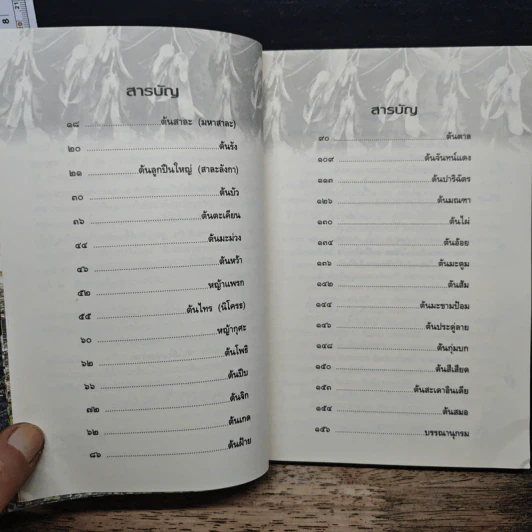 สารบัญ
๑๘ ต้นสาละ (มหาสาละ)
๒๐ ต้นรัง
๒๑ ต้นลูกปืนใหญ่ (สาละลังกา)
๓๐ ต้นบัว
๓๖ ต้นตะเคียน
๔๔ ต้นมะม่วง
๔๖ ต้นหว้า
๕๒ หญ้าแพรก
๕๕ ต้นไทร (นิโครธ)
๖๐ หญ้ากุศะ
๖๒ ต้นโพธิ
๖๖ ต้นปีบ
๗๒ ต้นจิก
๖๒ ต้นเกด
๘๖ ต้นฝ้าย
สารบัญ
๙๐ ต้นตาล
๑๐๙ ต้นจันทน์แดง
๑๑๓ ต้นปาริฉัตร
๑๒๖ ต้นมณฑา
๑๓๐ ต้นไผ่
๑๓๔ ต้นอ้อย
๑๓๖ ต้นมะตูม
๑๔๒ ต้นส้ม
๑๔๔ ต้นมะขามป้อม
๑๔๖ ต้นประดู่ลาย
๑๔๘ ต้นกุ่มบก
๑๕๐ ต้นสีเสียด
๑๕๓ ต้นสะเดาอินเดีย
๑๕๔ ต้นสมอ
๑๕๖ บรรณานุกรม